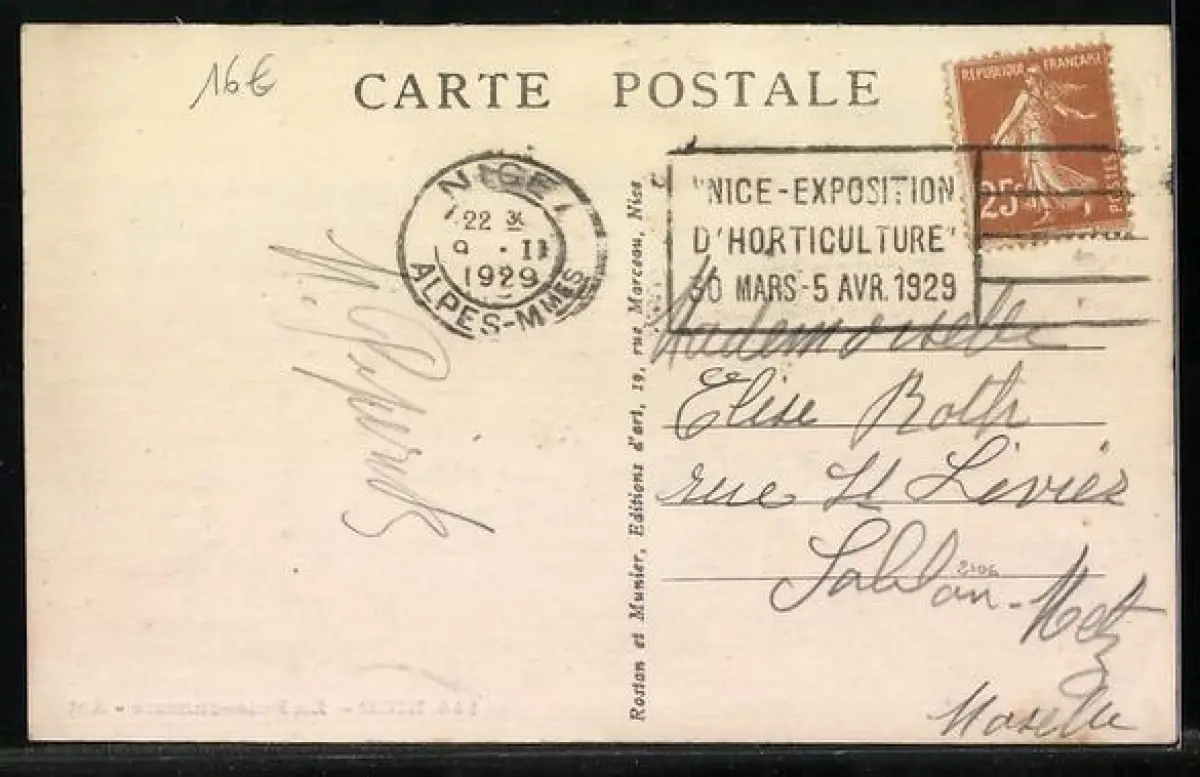 16€
CARTE POSTALE
REPUBLIQUE FRANÇAISE
25c
POSTES
NICE
22 30
9 - II
1929
ALPES-MMES
"NICE-EXPOSITION
D'HORTICULTURE"
30 MARS-5 AVR. 1929
Rostan et Munier, Editions d'art, 19, rue Marceau, Nice
Mademoiselle
Elise Roth
rue St Liviér
Sablon - Metz
Moselle